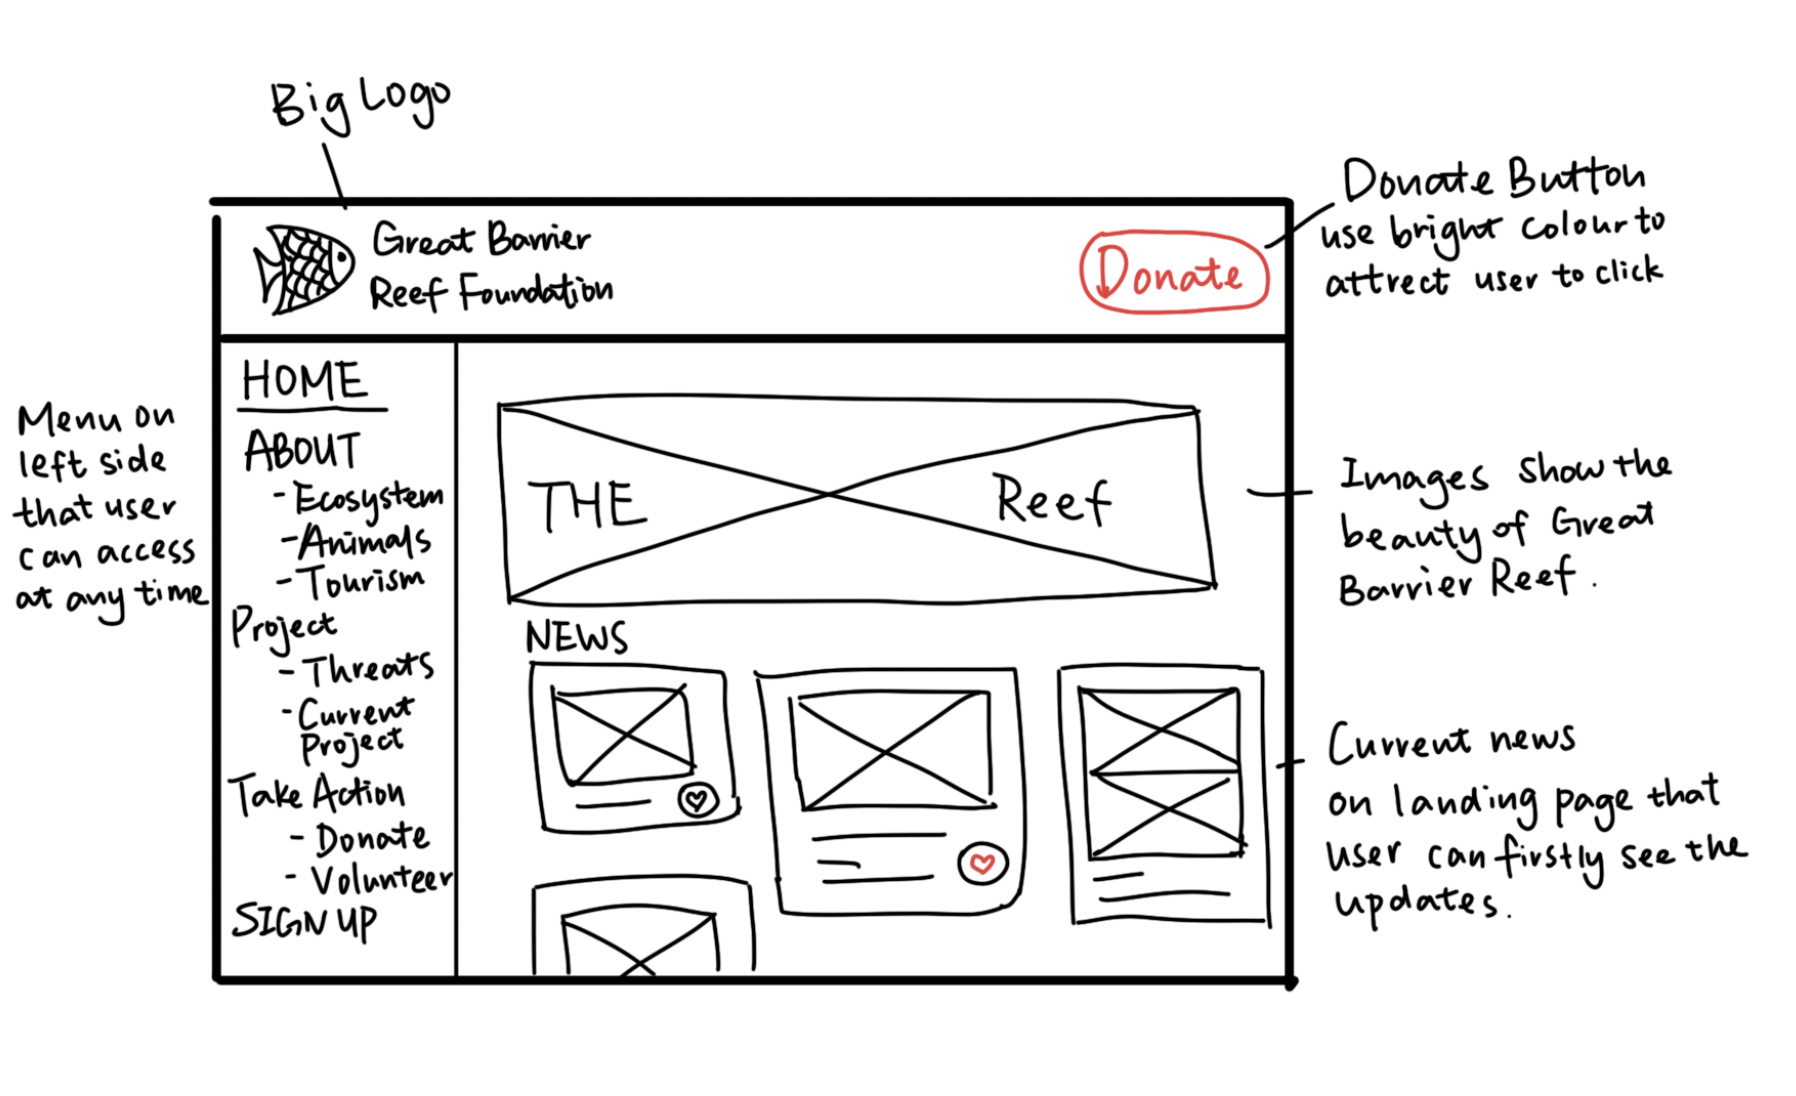 Big Logo
Great Barrier
Reef Foundation
Donate
Donate Button
use bright colour to
attrect user to click
Menu on
left side
that user
can access
at any time
HOME
ABOUT
- Ecosystem
- Animals
- Tourism
Project
- Threats
- Current
Project
Take Action
- Donate
- Volunteer
SIGN UP
THE Reef
Images show the
beauty of Great
Barrier Reef.
NEWS
Current news
on landing page that
user can firstly see the
updates.